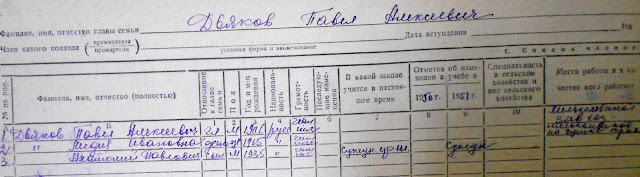 Дьяков Павел Алексеевич
Фамилия, имя, отчество главы семьи
Член какого колхоза (промколхоза промартели)
уставная форма и наименование
Дата вступления 194
1. Список членов
№№ по пор.
Фамилия, имя, отчество (полностью)
Отношение к главе семьи
Пол
Год и м-ц рождения
Националь-ность
Грамот-ность
Последую-щие изме-нения
В какой школе учится в настоя-щее время
Отметка об изме-нении в учебе в
1950 г.
1951 г.
Специальность в сельском хозяйстве и вне сельского хозяйства
Места работы и в ка-честве кого работает
6 7 8 9 10
1 Дьяков Павел Алексеевич гл М 1916 русс
2 " Лидия Ивановна жена 1915 "
3 " Анатолий Павлович сын М 1935 "
Суксун